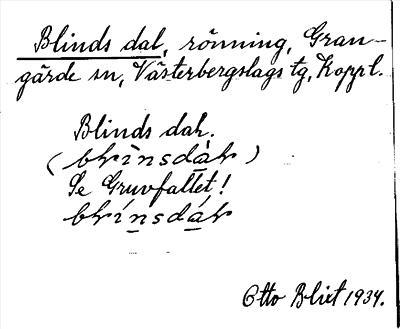 Blinds dal, rönning, Gran-
gärde sn, Västerbergslags tg, Koppl.
Blinds dal.
(blinsdàl)
Se Gruvfallet!
blínsdál
Otto Blixt 1934.